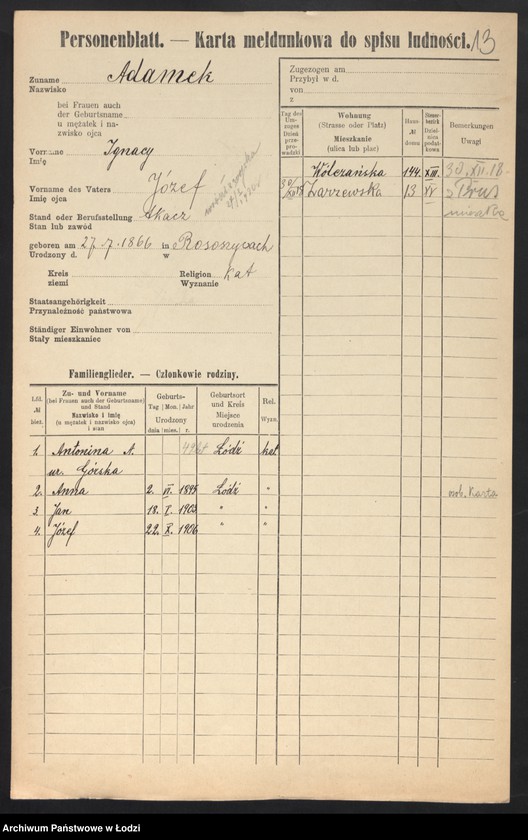 Personenblatt. — Karta meldunkowa do spisu ludności. 13
Zuname Adamek
Nazwisko
bei Frauen auch
der Geburtsname
u mężatek i na-
zwisko ojca
Vorname Ignacy
Imię
Vorname des Vaters Józef
Imię ojca
Stand oder Berufsstellung tkacz
Stan lub zawód
geboren am 27.7.1866 in
Urodzony d. w
Kreis Religion Kat
ziemi Wyznanie
Staatsangehörigkeit
Przynależność państwowa
Ständiger Einwohner von
Stały mieszkaniec
Zugezogen am
Przybył w d.
von
z
Tag des Um-zuges Dzień prze-prowadzki
Wohnung (Strasse oder Platz) Mieszkanie (ulica lub plac)
Haus- № domu
Steuer-bezirk Dziel-nica podat-kowa
Bemerkungen Uwagi
Wólczańska 144. XIII.
Zarzewska 13 XV
Familienglieder. — Członkowie rodziny.
Lfd. № bież.
Zu- und Vorname (bei Frauen auch der Geburtsname) und Stand Nazwisko i imię (u mężatek i nazwisko ojca) i stan
Geburts- Tag Mon. Jahr Urodzony dnia mies. r.
Geburtsort und Kreis Miejsce urodzenia
Rel. Wyzn.
1. Antonina A. Łódź kat
ur. Górska
2. Anna 2. VI. 1895 Łódź " osb. Karta
3 Jan 18. X. 1903 " "
4. Józef 22. X. 1906 " "
Archiwum Państwowe w Łodzi